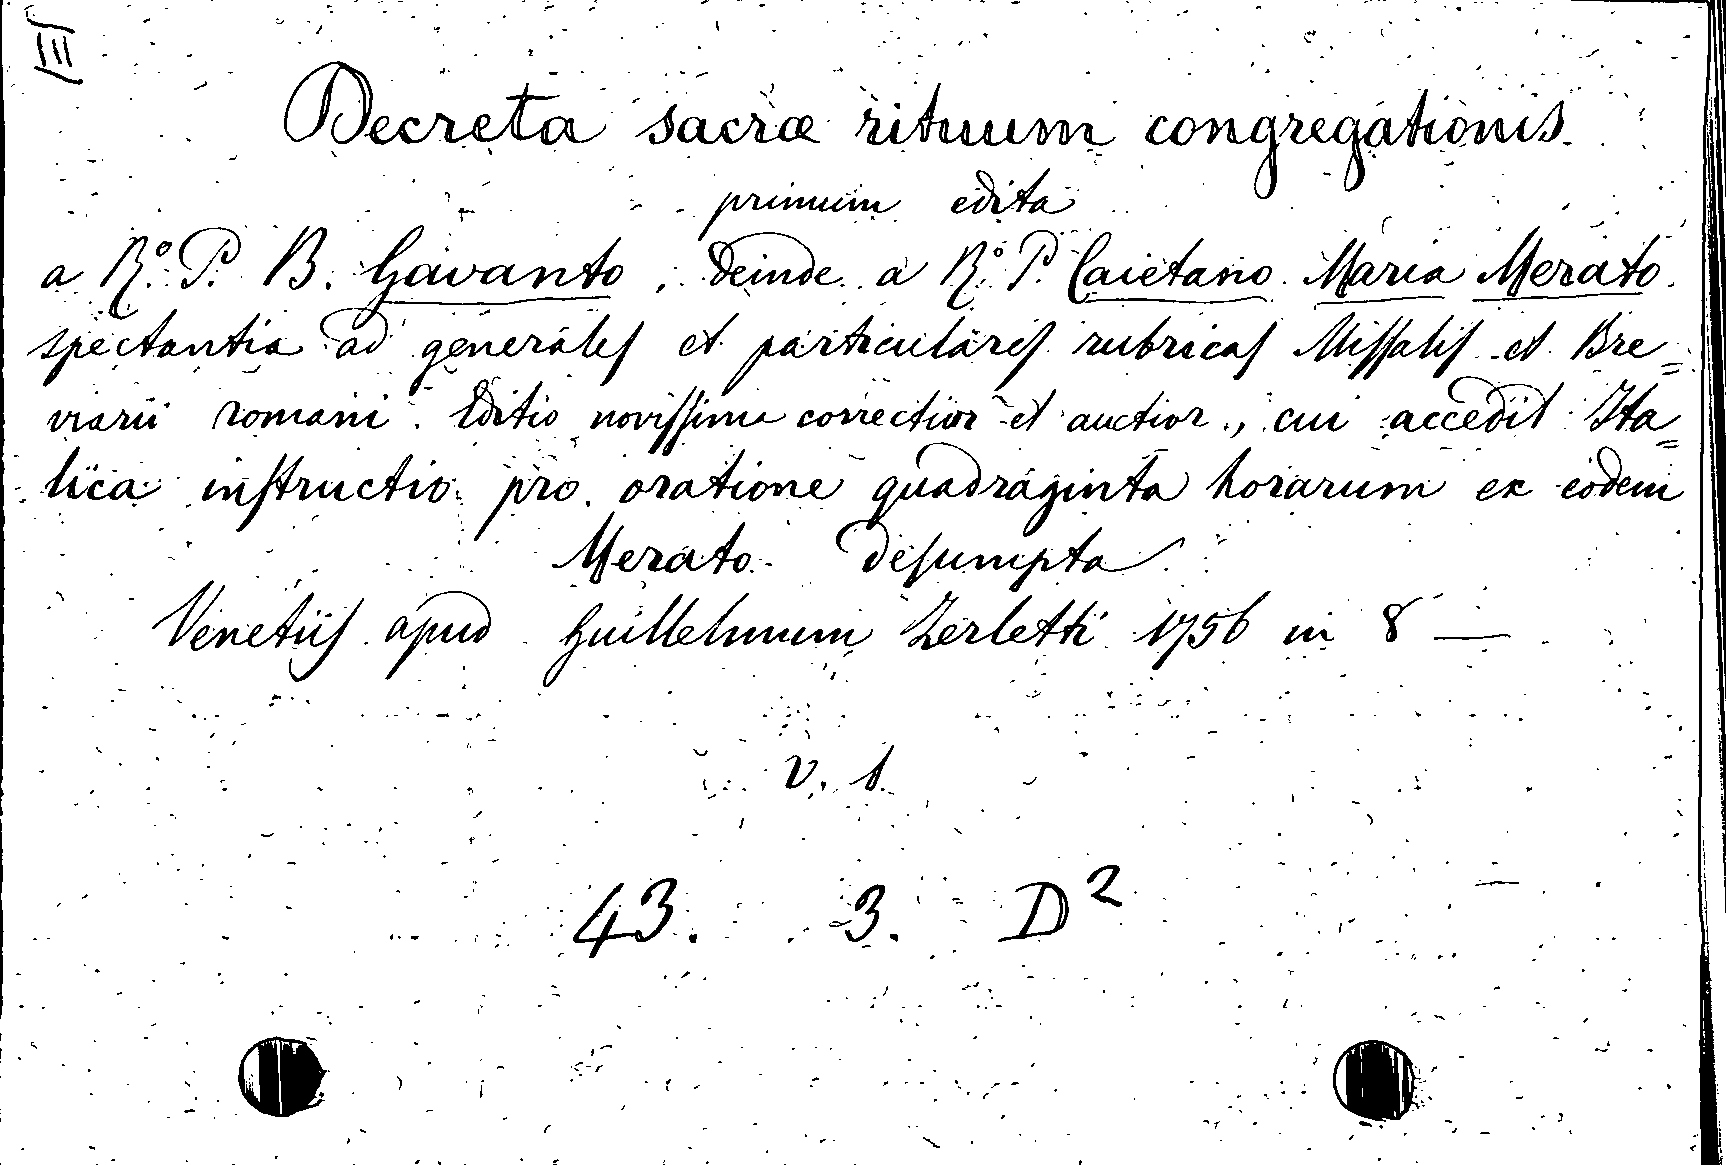 III
Decreta sacræ rituum congregationis.
primum edita
a R.º P. B. Gavanto, deinde a R.º P. Caietano Maria Merato.
spectantia ad generales et particulares rubricas Missalis et Bre=
viarii romani. Editio novissima correctior et auctior, cui accedit Ita=
lica instructio pro oratione quadraginta horarum ex eodem
Merato desumpta
Venetiis apud Guillelmum Zerletti 1756 in 8 —
v. 1.
43. 3. D²